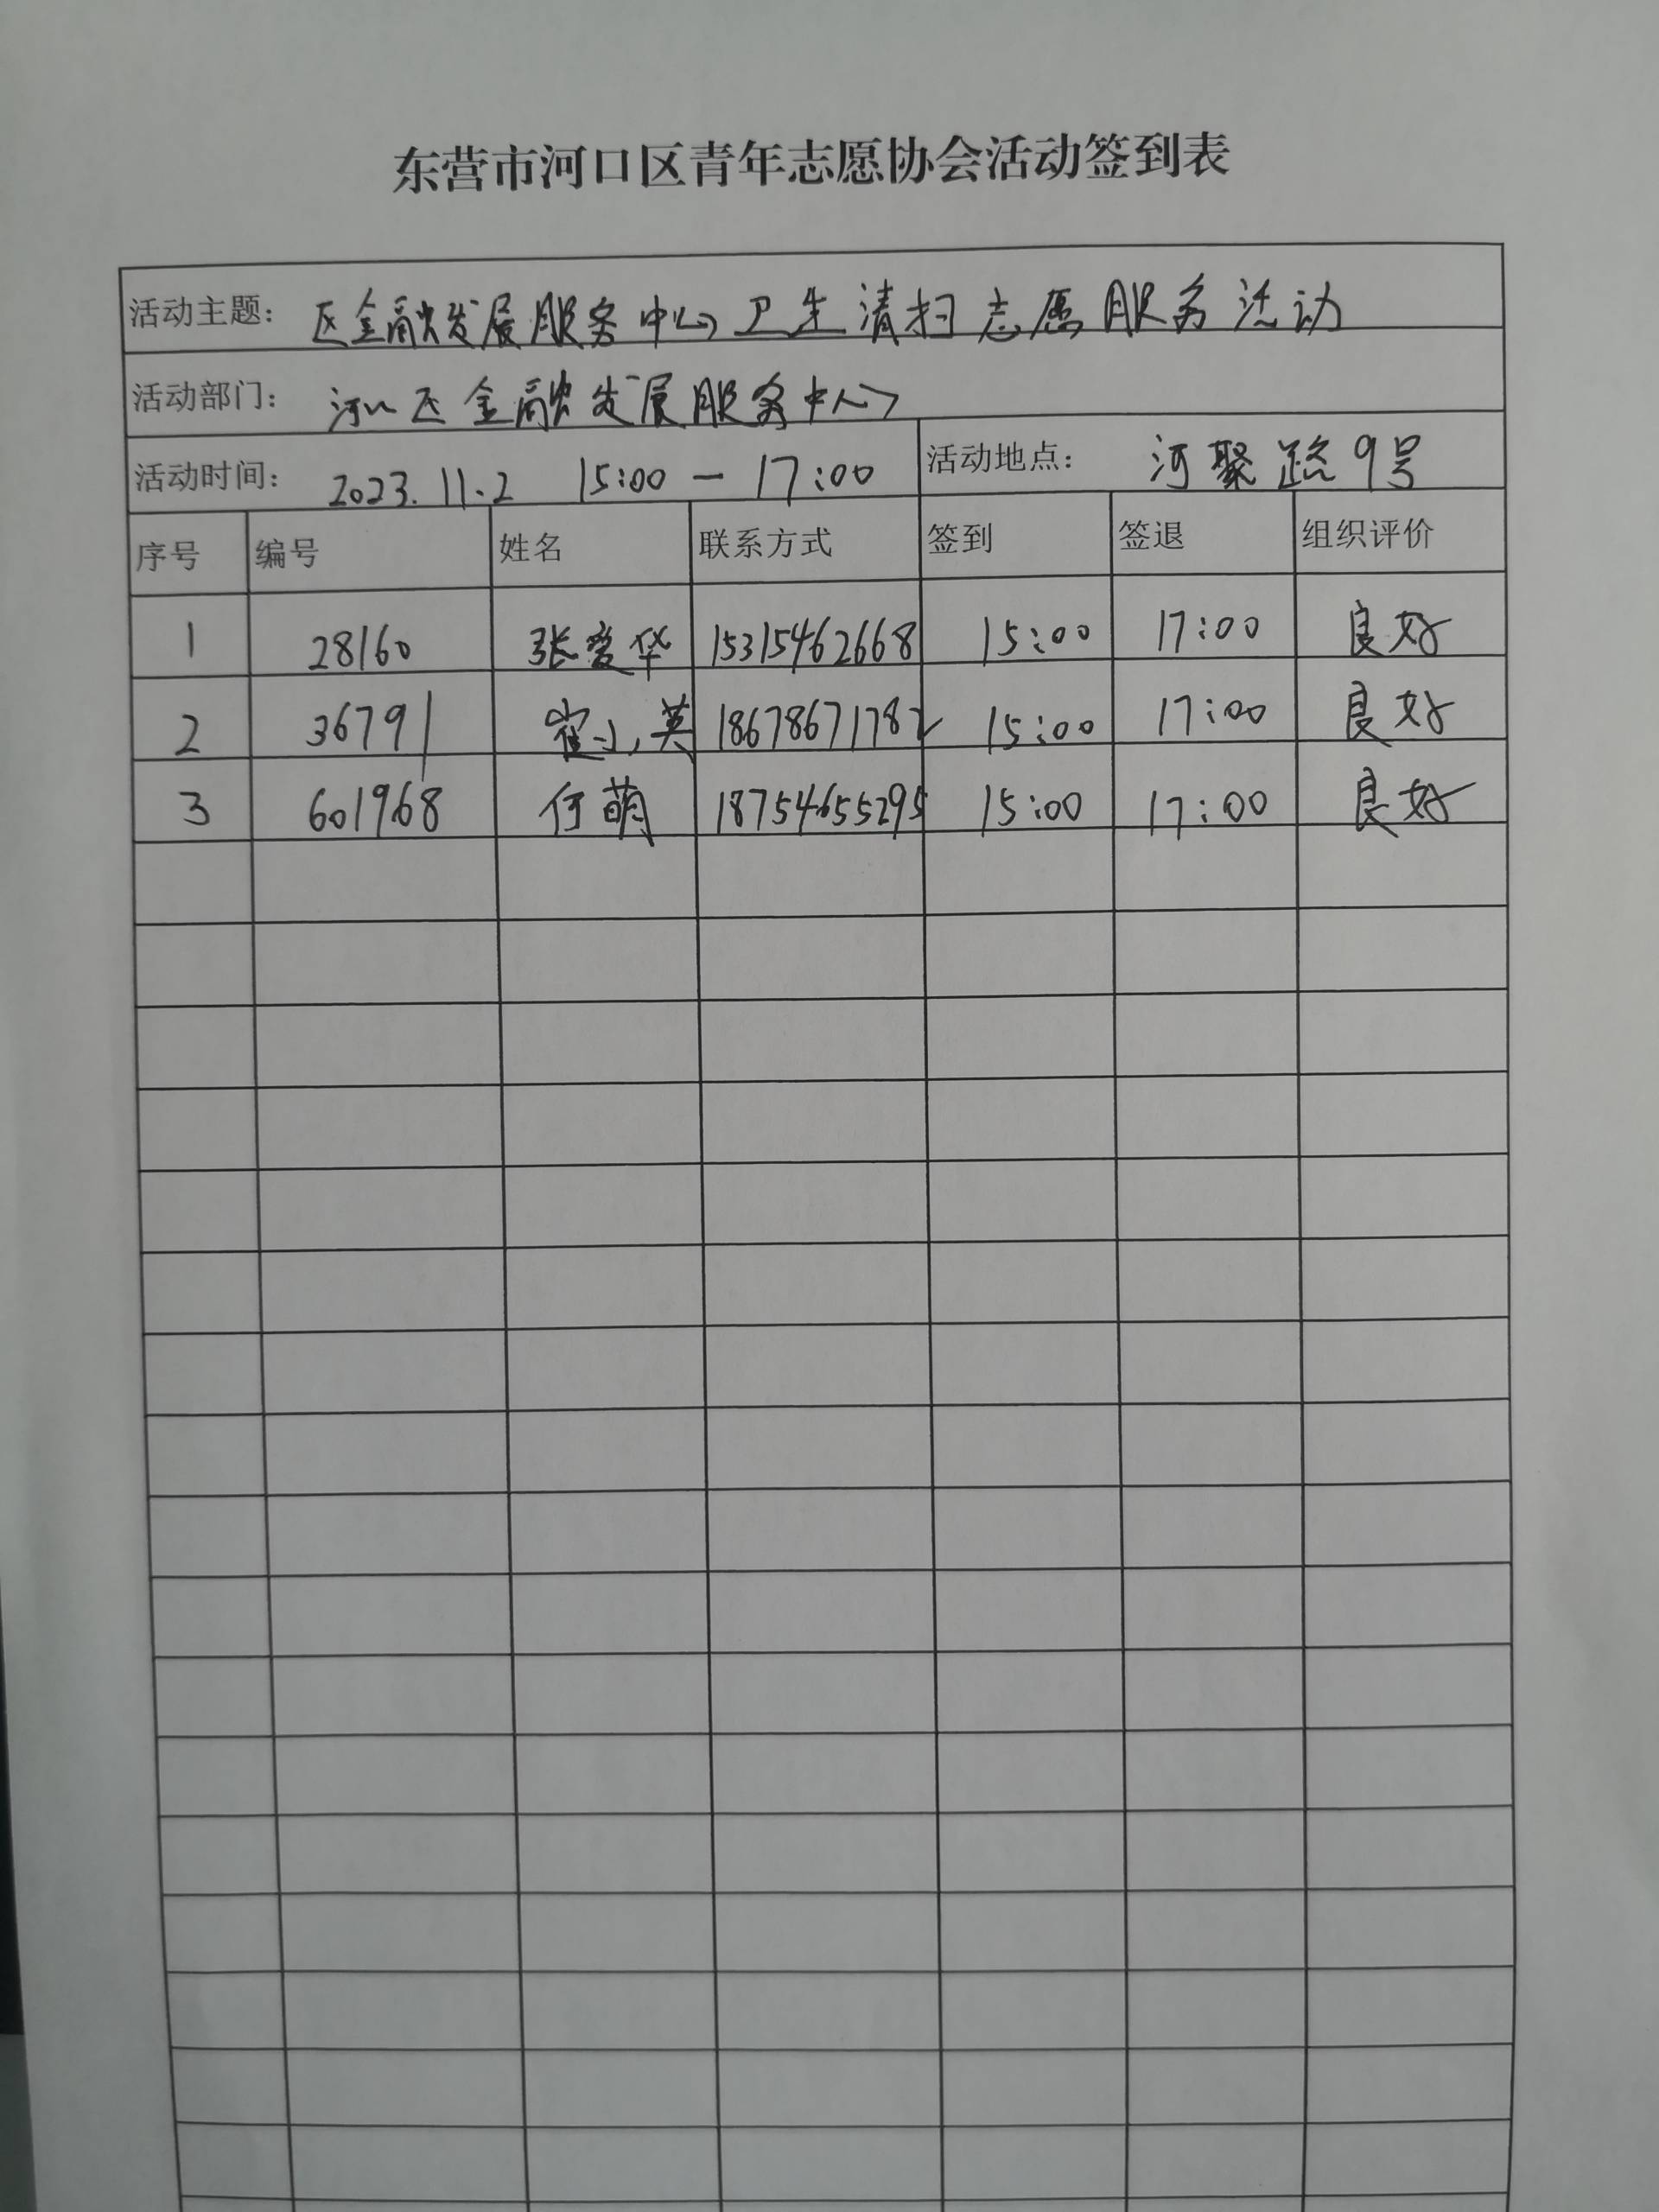 东营市河口区青年志愿协会活动签到表
活动主题： 区金融发展服务中心卫生清扫志愿服务活动
活动部门： 河口区金融发展服务中心
活动时间： 2023.11.2 15:00 — 17:00 活动地点： 河聚路9号
序号 编号 姓名 联系方式 签到 签退 组织评价
1 28160 张爱华 15315462668 15:00 17:00 良好
2 36791 崔小英 18678671782 15:00 17:00 良好
3 601968 何萌 18754655295 15:00 17:00 良好